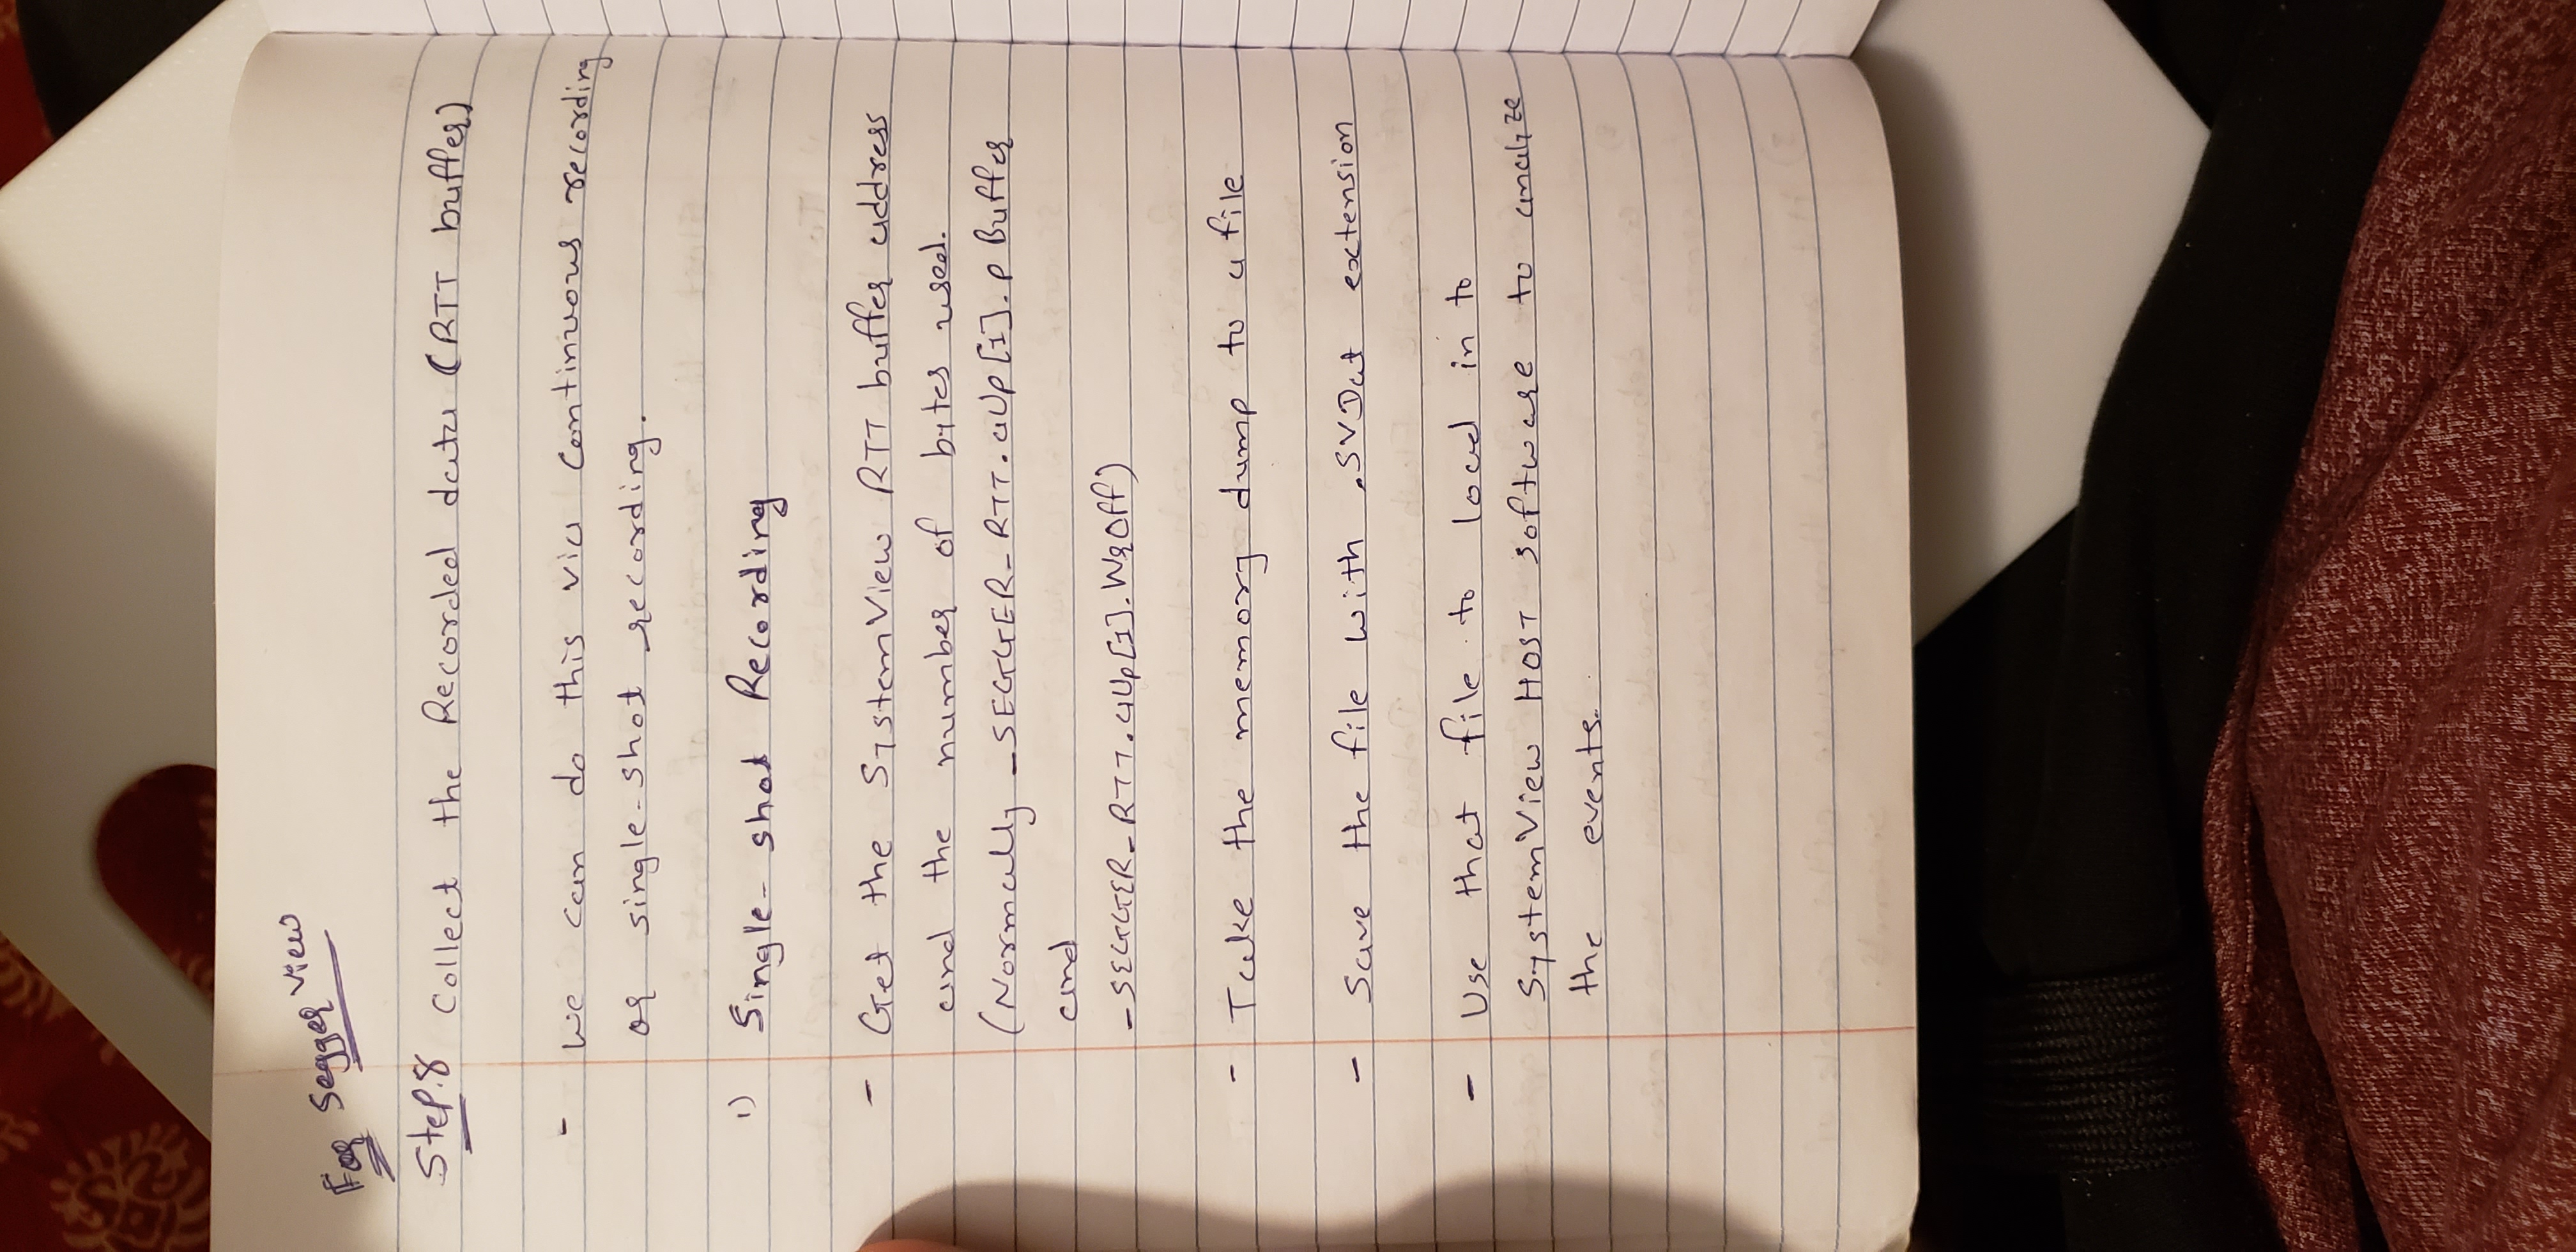 For Segger View
Step.8 Collect the Recorded data (RTT buffer)
- We can do this via continuous recording
or single-shot recording.
1) Single-shot Recording
- Get the SystemView RTT buffer address
and the number of bytes used.
(Normally _SEGGER_RTT.aUp[1].pBuffer
and
_SEGGER_RTT.aUp[1].WrOff)
- Take the memory dump to a file
- Save the file with .SVDat extension
- Use that file to load in to
SystemView HOST software to analyze
the events.